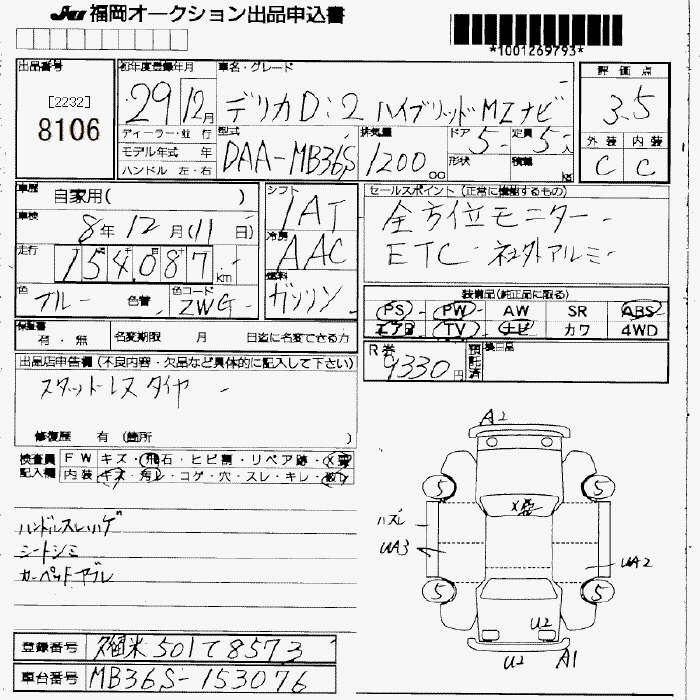 JU 福岡オークション出品申込書
*1001269793*
出品番号
[2232]
8106
初年度登録年月
29 12月
ディーラー・並行
モデル年式 年
ハンドル 左・右
車名・グレード
デリカD:2 ハイブリッドMZナビ
型式
DAA-MB36S
排気量
1200 cc
ドア 5
形状
定員 5人
積載 kg
評価点
3.5
外装 内装
C C
車歴
自家用( )
車検
8年 12月(11日)
走行
154,087 km
色
ブルー 色替
色コード
ZWG
シフト
IAT
冷房
AAC
燃料
ガソリン
セールスポイント(正常に機能するもの)
全方位モニター
ETC 社外アルミ
装備品(純正品に限る)
PS PW AW SR ABS
エアB TV ナビ カワ 4WD
保証書
有・無
名変期限 月 日迄に名変できる方
R券
9330円
預託済
出品店申告欄(不良内容・欠品など具体的に記入して下さい)
スタットレスタイヤ
修復歴 有 (箇所 )
検査員記入欄
FW キズ・飛石・ヒビ割・リペア跡・X要
内装 キズ・汚レ・コゲ・穴・スレ・キレ・破レ
ハンドルスレハゲ
シートシミ
カーペットヤブレ
A2
5 5
X要
ハズレ
UA3
UA2
5 5
U2
U2 A1
登録番号 久留米501て8573
車台番号 MB36S-153076